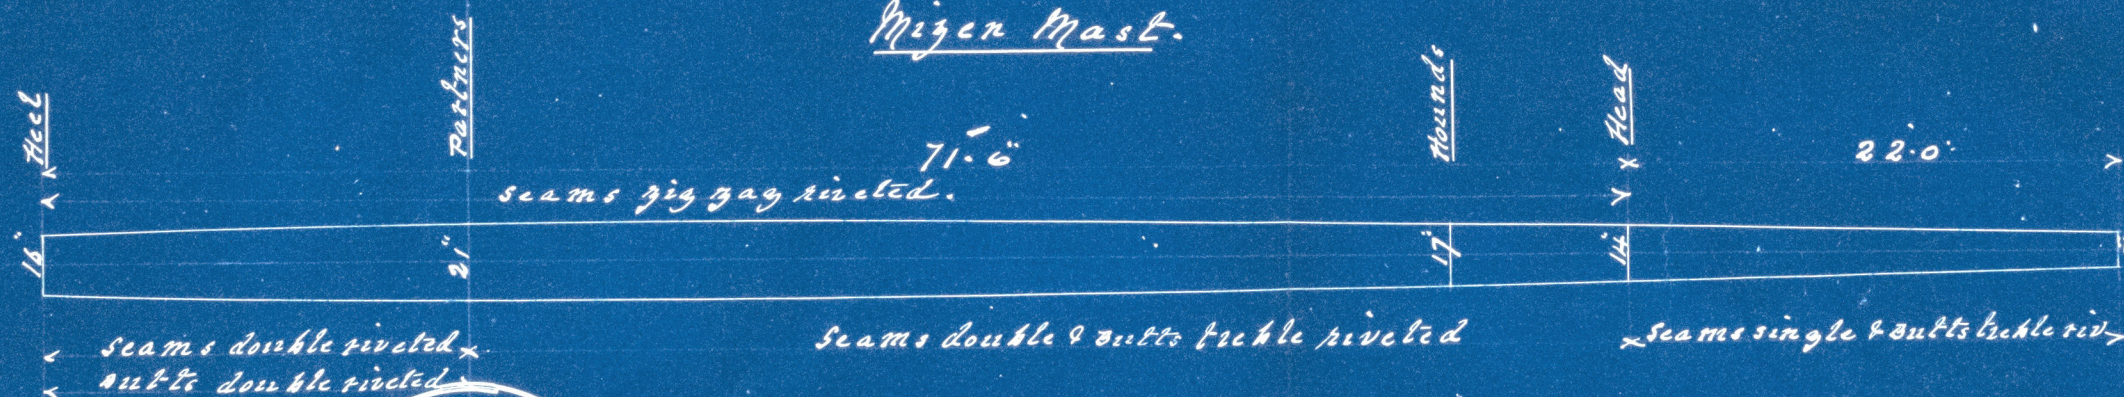 Mizen Mast.
Heel
Partners
Hounds
Head
71'-6"
22'-0"
seams zig zag riveted.
16"
21"
17"
14"
seams double riveted
Butts double riveted
Seams double & Butts treble riveted
Seams single & Butts treble riv